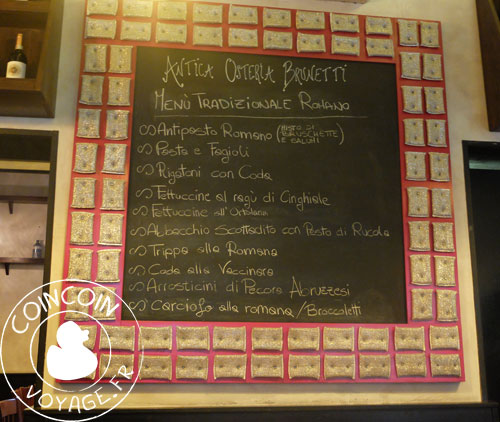 Antica Osteria Brunetti
Menù Tradizionale Romano
Antipasto Romano (misto di bruschette e salumi)
Pasta e Fagioli
Rigatoni con Coda
Fettuccine al ragù di Cinghiale
Fettuccine all'Ortolana
Abbacchio Scottadito con Pesto di Rucola
Trippa alla Romana
Coda alla Vaccinara
Arrosticini di Pecora Abruzzesi
Carciofo alla romana/Broccoletti
COINCOIN
VOYAGE.FR